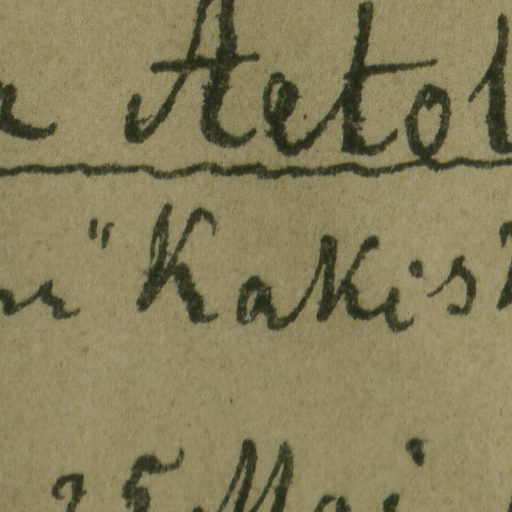 Aetol
"Kakis
25 Mai